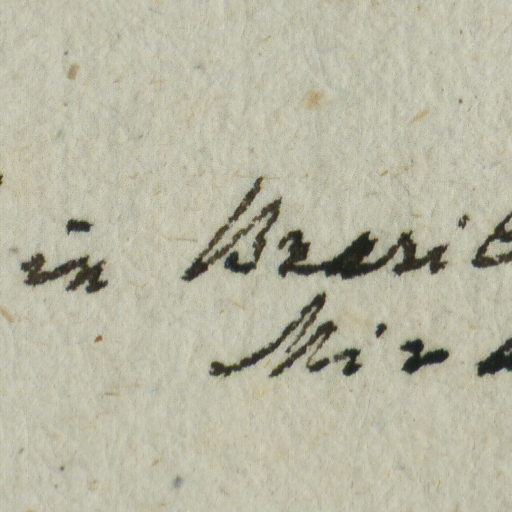 in Brasil
Mir